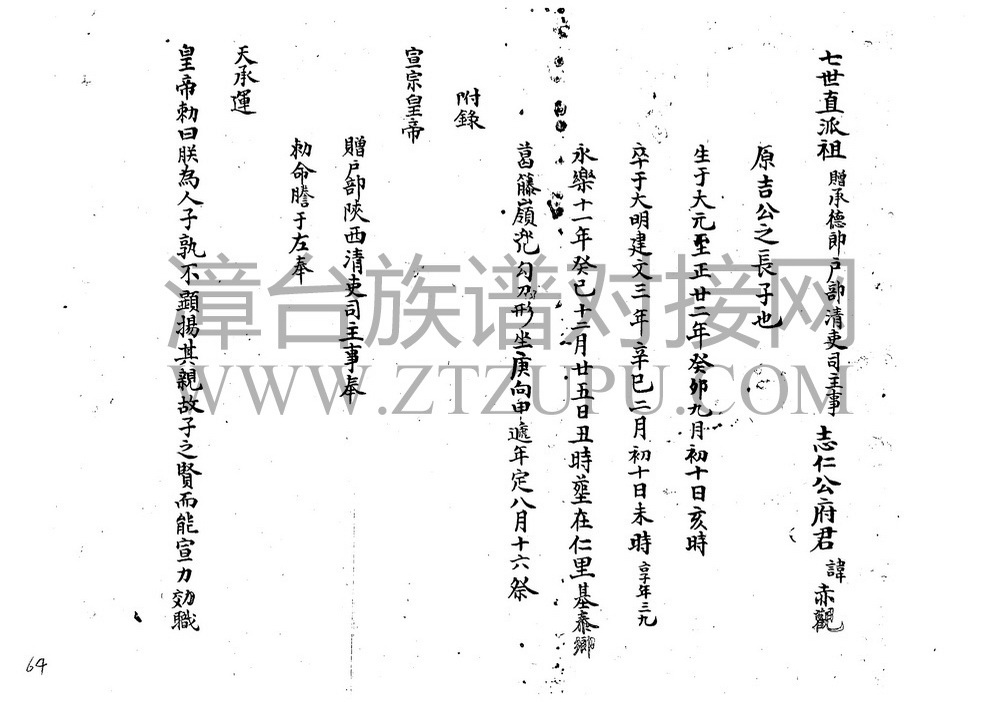 七世直派祖 贈承德郎户部清吏司主事 志仁公府君 諱赤觀
原吉公之長子也
生于大元至正廿二年癸卯九月初十日亥時
卒于大明建文三年辛巳二月初十日未時 享年三九
永樂十一年癸巳十二月廿五日丑時塟在仁里基泰鄉
葛籐嶺兠勾刀形坐庚向甲遞年定八月十六祭
附錄
宣宗皇帝
贈户部陝西清吏司主事奉
勅命謄于左奉
天承運
皇帝勅曰朕為人子孰不顯揚其親故子之賢而能宣力効職
64
漳台族谱对接网
WWW.ZTZUPU.COM